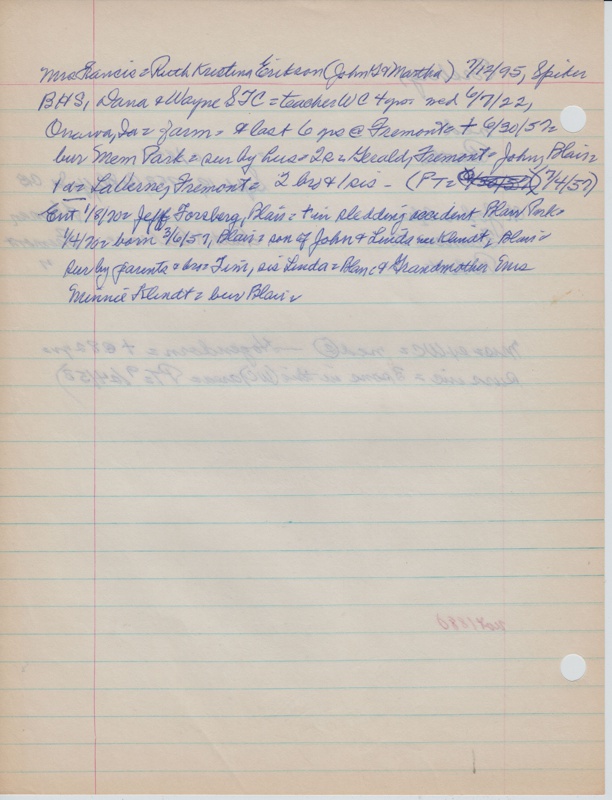 Mrs Francis = Ruth Kristina Erikson (John G & Martha) 7/12/95, Spiker
BHS, Dana & Wayne STC = teacher WC 4 yrs wed 6/7/22,
Onawa, Ia = farm = & last 6 yrs @ Fremont = + 6/30/57 =
bur Mem Park = sur by hus = 2s = Gerald, Fremont = John, Blair =
1 da = LaVerne, Fremont = 2 bry & 1 sis - (PT = 7/4/57)
Ent 1/8/70 = Jeff Forsberg, Blair = + in sledding accident Blair Park =
1/4/70 = born 3/6/57, Blair = son of John & Linda nee Klindt, Blair =
sur by parents = bro = Tim, sis Linda = Blair, & Grandmother Mrs
Minnie Klindt = bur Blair =